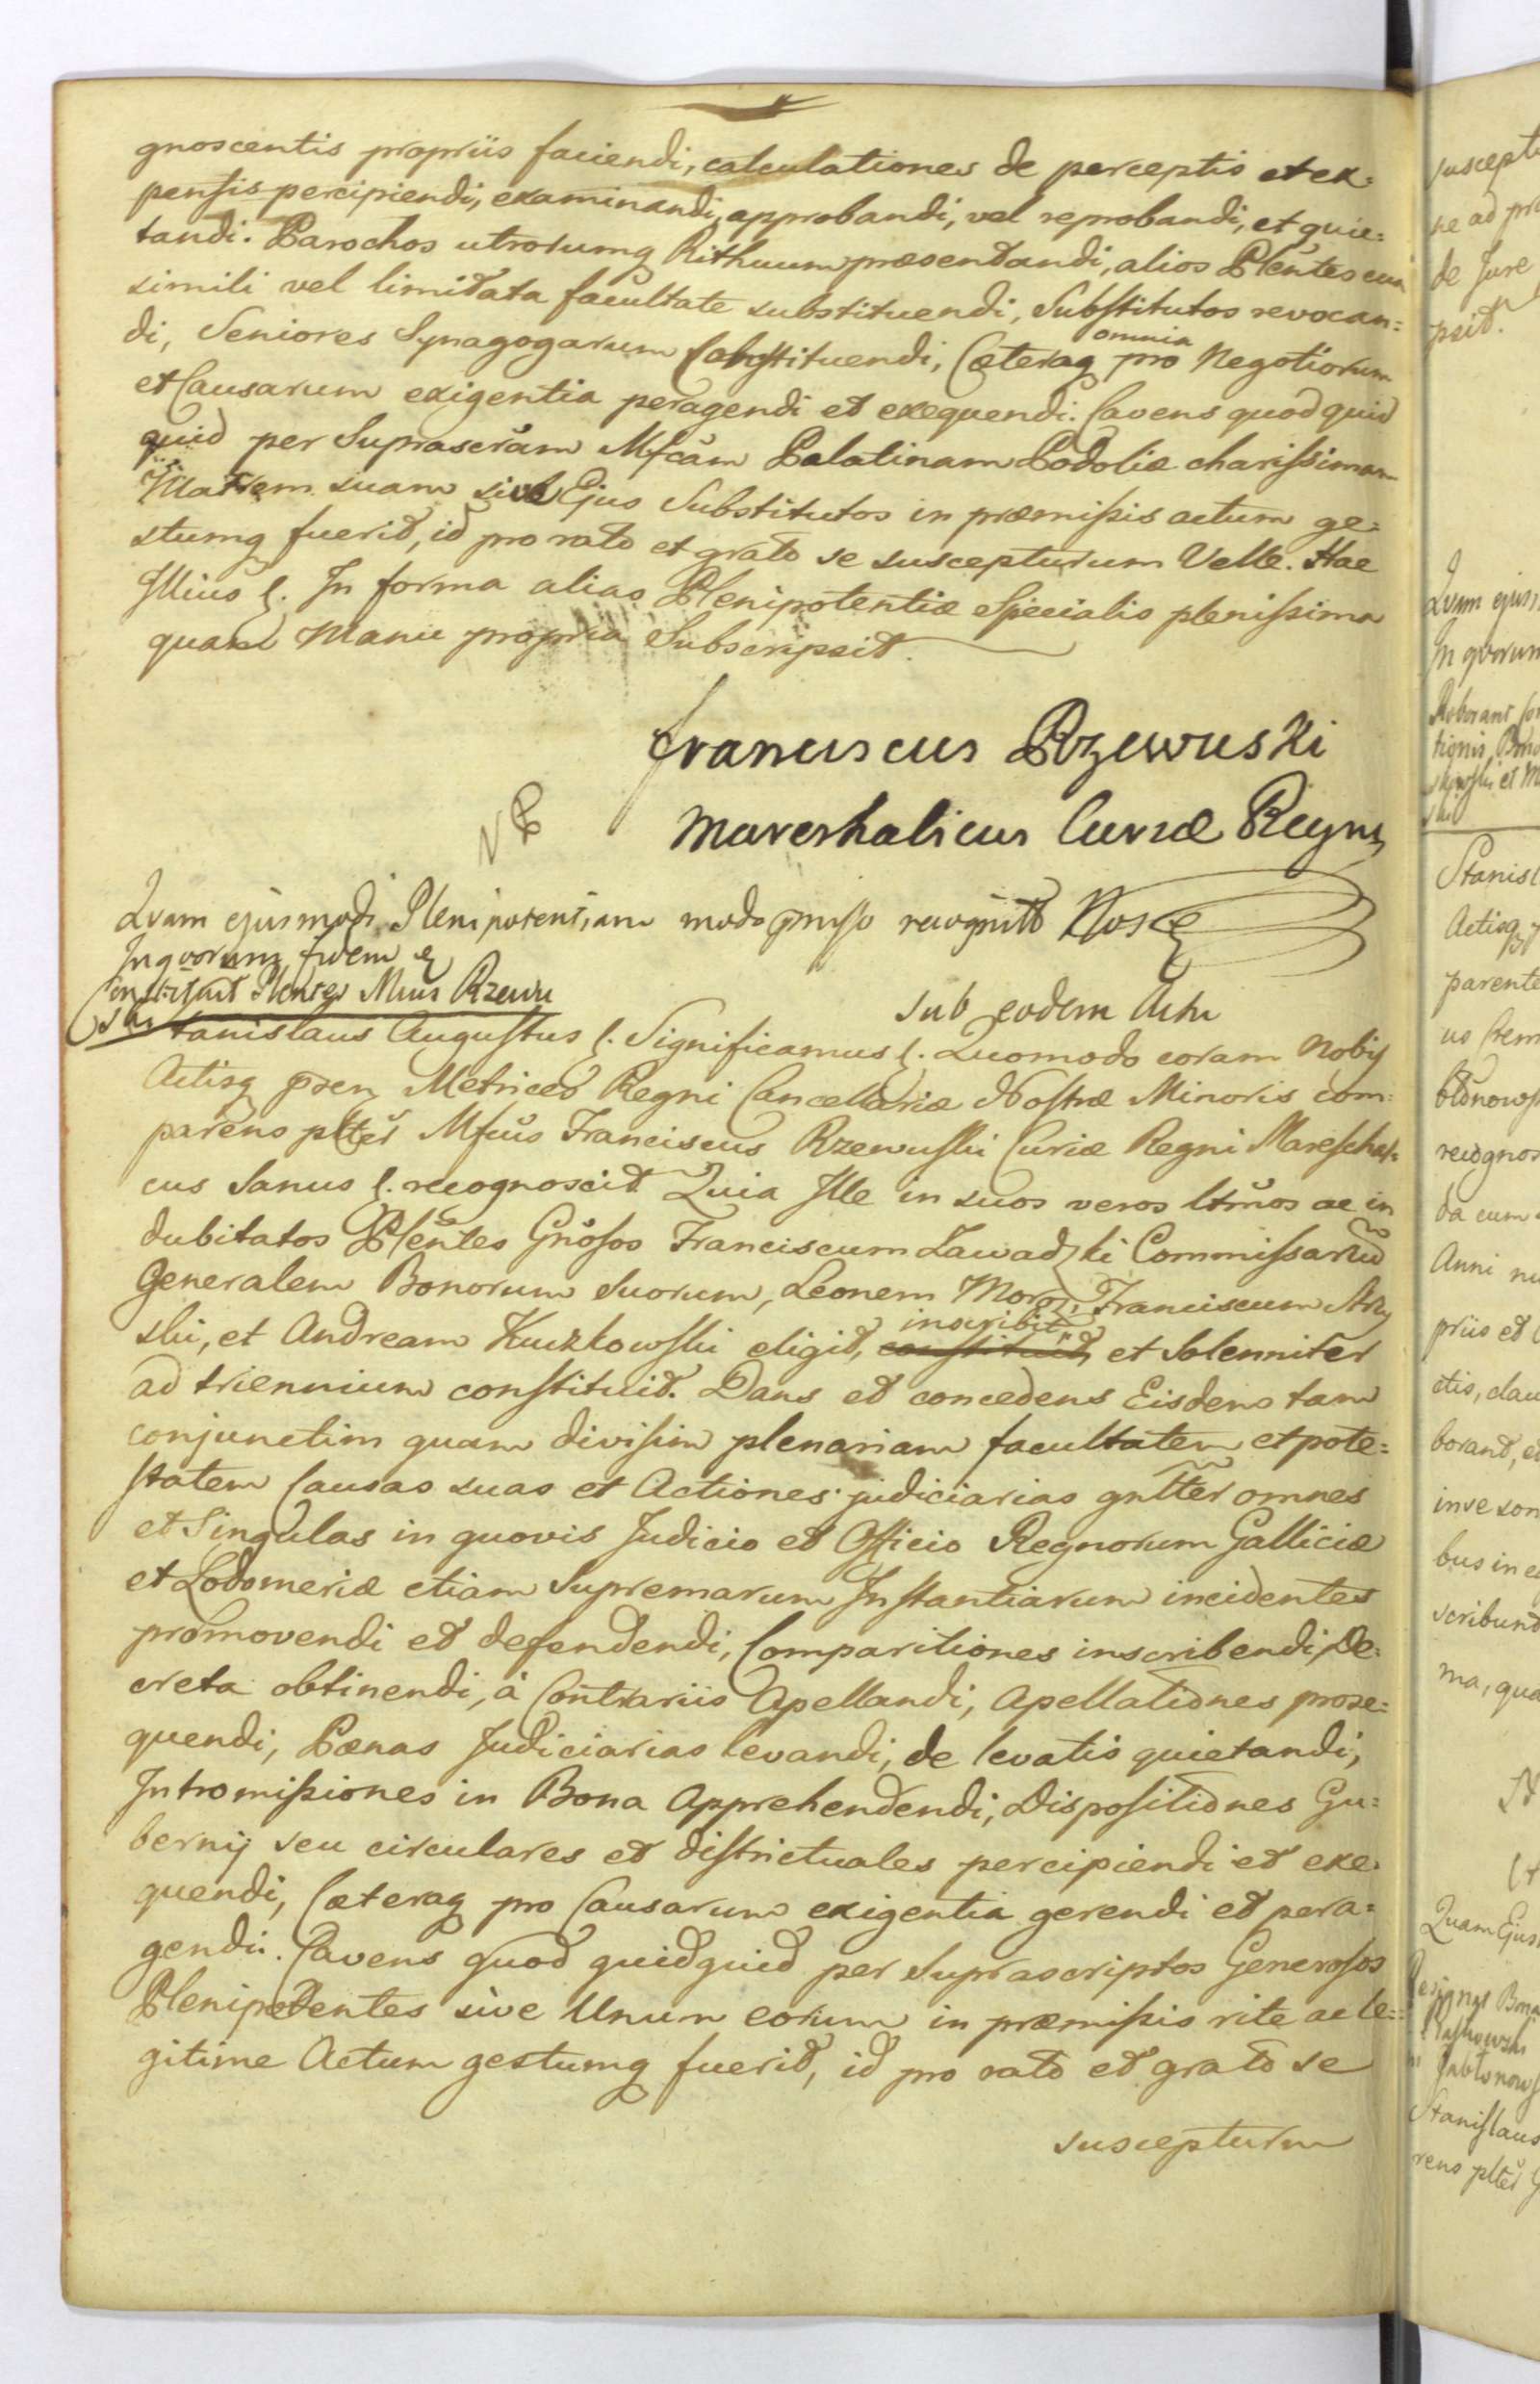 gnoscentis propriis faciendi, calculationes de perceptis et ex:
pensis percipiendi, examinandi, approbandi, vel reprobandi, et quie:
tandi. Parochos utrorumq Rithuum præsentandi, alios Plentes cum
simili vel limitata facultate substituendi, Substitutos revocan:
di, Seniores Synagogarum Constituendi, Cæteraq omnia pro Negotiorum
et Causarum exigentia peragendi et exequendi. Cavens quod quid
quid per Suprascram Mfcam Palatinam Podoliæ charissimam
Matrem suam sive Ejus Substitutos in præmissis actum ge:
stumq fuerit, id pro rato et grato se suscepturum Velle. Hac
Illius &. In forma alias Plenipotentiæ Specialis plenissima
quam Manu propria Subscripsit.
Franciscus Rzewuski
Mareshalicus Curiæ Regni
Quam ejusmodi Plenipotentiam modo pmisso recognitt Nos &
In quorum fidem &
Constituit Plentes Mcus Rzewu
ski
sub eodem Actu
Stanislaus Augustus &. Significamus &. Quomodo coram Nobis
Actisq psen Metrices Regni Cancellariæ Nostræ Minoris com:
parens pltter Mfcus Franciscus Rzewuski Curiæ Regni Mareschal:
cus Sanus &. recognoscit Quia Ille in suos veros ltmos ac in
dubitatos Plentes Gnosos Franciscum Zawadzki Commissariu
Generalem Bonorum Suorum, Leonem Moroz, Franciscum
ski, et Andream Kuczkowski eligit, inscribit, constituit, et Solenniter
ad triennium constituit. Dans et concedens Eisdem tam
conjunctim quam divisim plenariam facultatem et pote:
statem Causas suas et Actiones judiciarias gnltter omnes
et Singulas in quovis Judicio et Officio Regnorum Galliciæ
et Lodomeriæ etiam Supremarum Instantiarum incidentes
promovendi et defendendi, Comparitiones inscribendi, De:
creta obtinendi, à Contrariis Apellandi, Apellationes prose:
quendi, Pœnas Judiciarias levandi, de levatis quietandi,
Intromissiones in Bona Apprehendendi, Dispositiones Gu:
bernij seu circulares et districtuales percipiendi et exe:
quendi, Cæteraq pro Causarum exigentia gerendi et pera:
gendi. Cavens quod quidquid per Suprascriptos Generosos
Plenipotentes sive Unum eorum in præmissis rite ac le:
gitime Actum gestumq fuerit, id pro rato et grato se
suscepturum